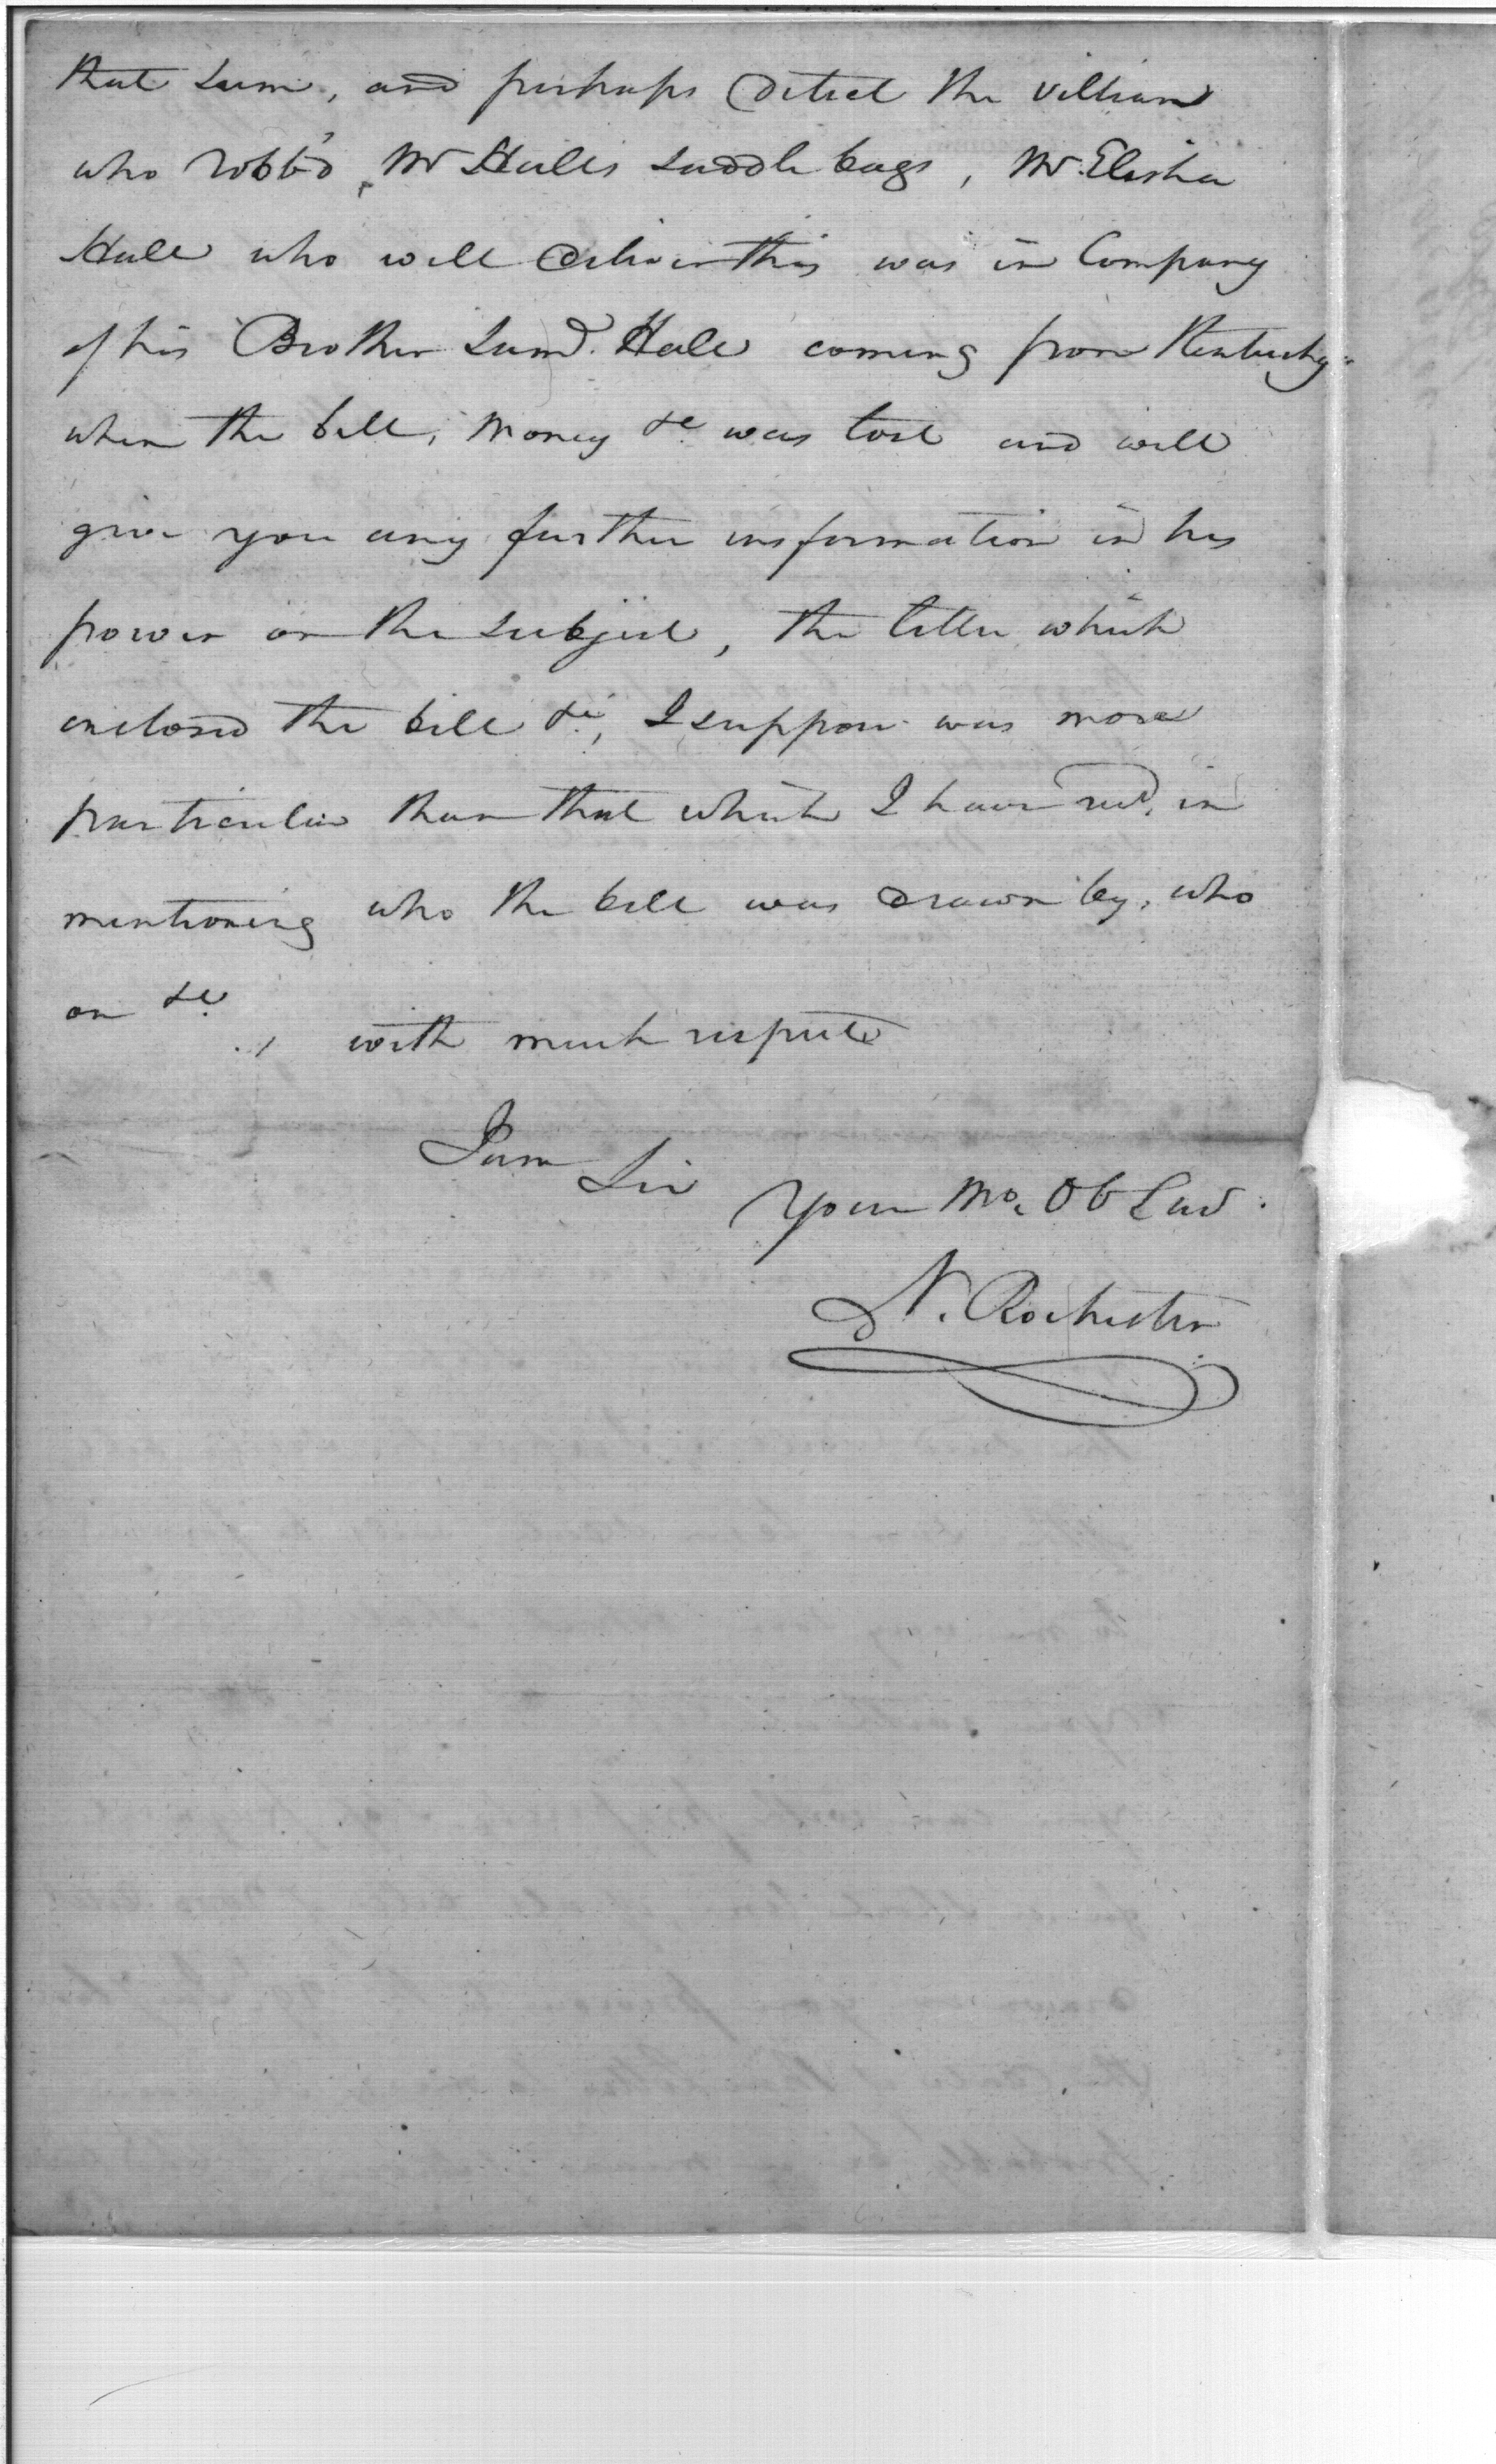 that sum, and perhaps detect the villian
who robb'd Mr Halls saddle bags, Mr. Elisha
Hall who will deliver this was in Company
of his Brother Saml. Hall coming from Kentucky
when the bill, money &c was lost and will
give you any further information in his
power on the subject, the letter which
enclosed the bill &c, I suppose was more
particular than that which I have recd. in
mentioning who the bill was drawn by, who
on &c.
with much respect
I am
Sir
Your Mo. Ob Serv.
N. Rochester